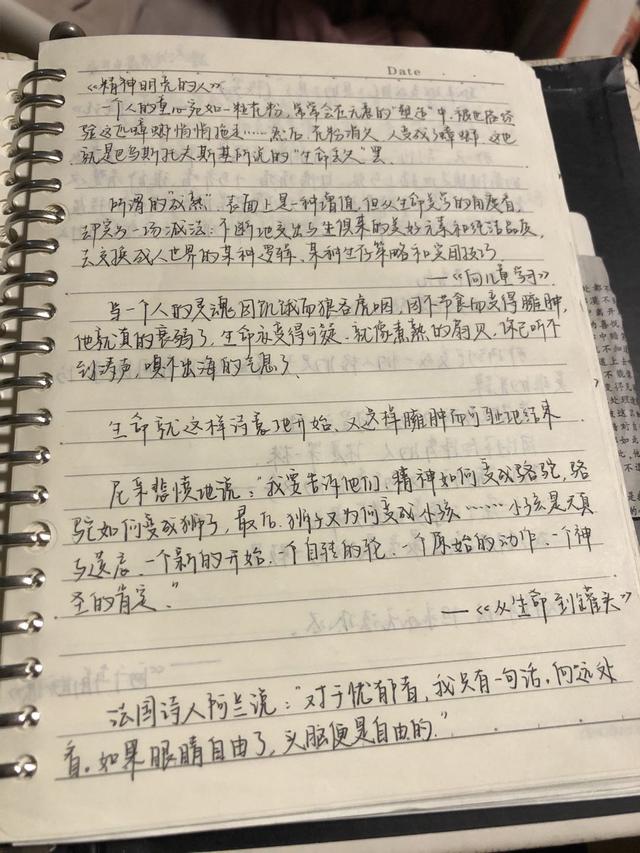 Date
《精神明亮的人》
一个人的童心宛如一粒花粉，常常会在无意的“塑造”中，被世俗经
验这匹蟑螂悄悄拖走……然后，花粉消失，人变成了蟑螂。这也
就是巴乌斯托夫斯基所说的“生命丢失”罢
所谓的“成熟”，表面上是一种增值，但从生命美学的角度看，
却实为一场减法：不断地交出与生俱来的美好元素和纯洁品质，
去交换成人世界的某种逻辑、某种生存策略和实用技巧
——《向儿童学习》
当一个人的灵魂因饥饿而狼吞虎咽，因不节食而变得臃肿，
他就真的衰弱了，生命亦变得可疑。就像煮熟的扇贝，你已听不
到涛声，嗅不出海的气息了
生命就这样诗意地开始，又这样臃肿而可耻地结束
尼采悲愤地说：“我要告诉他们，精神如何变成骆驼，骆
驼如何变成狮子，最后，狮子又为何变成小孩……小孩是天真
与遗忘，一个新的开始，一个自转的轮，一个原始的动作，一个神
圣的肯定。”
——《从生命到罐头》
法国诗人阿兰说：“对于忧郁者，我只有一句话，向远处
看。如果眼睛自由了，头脑便是自由的.”